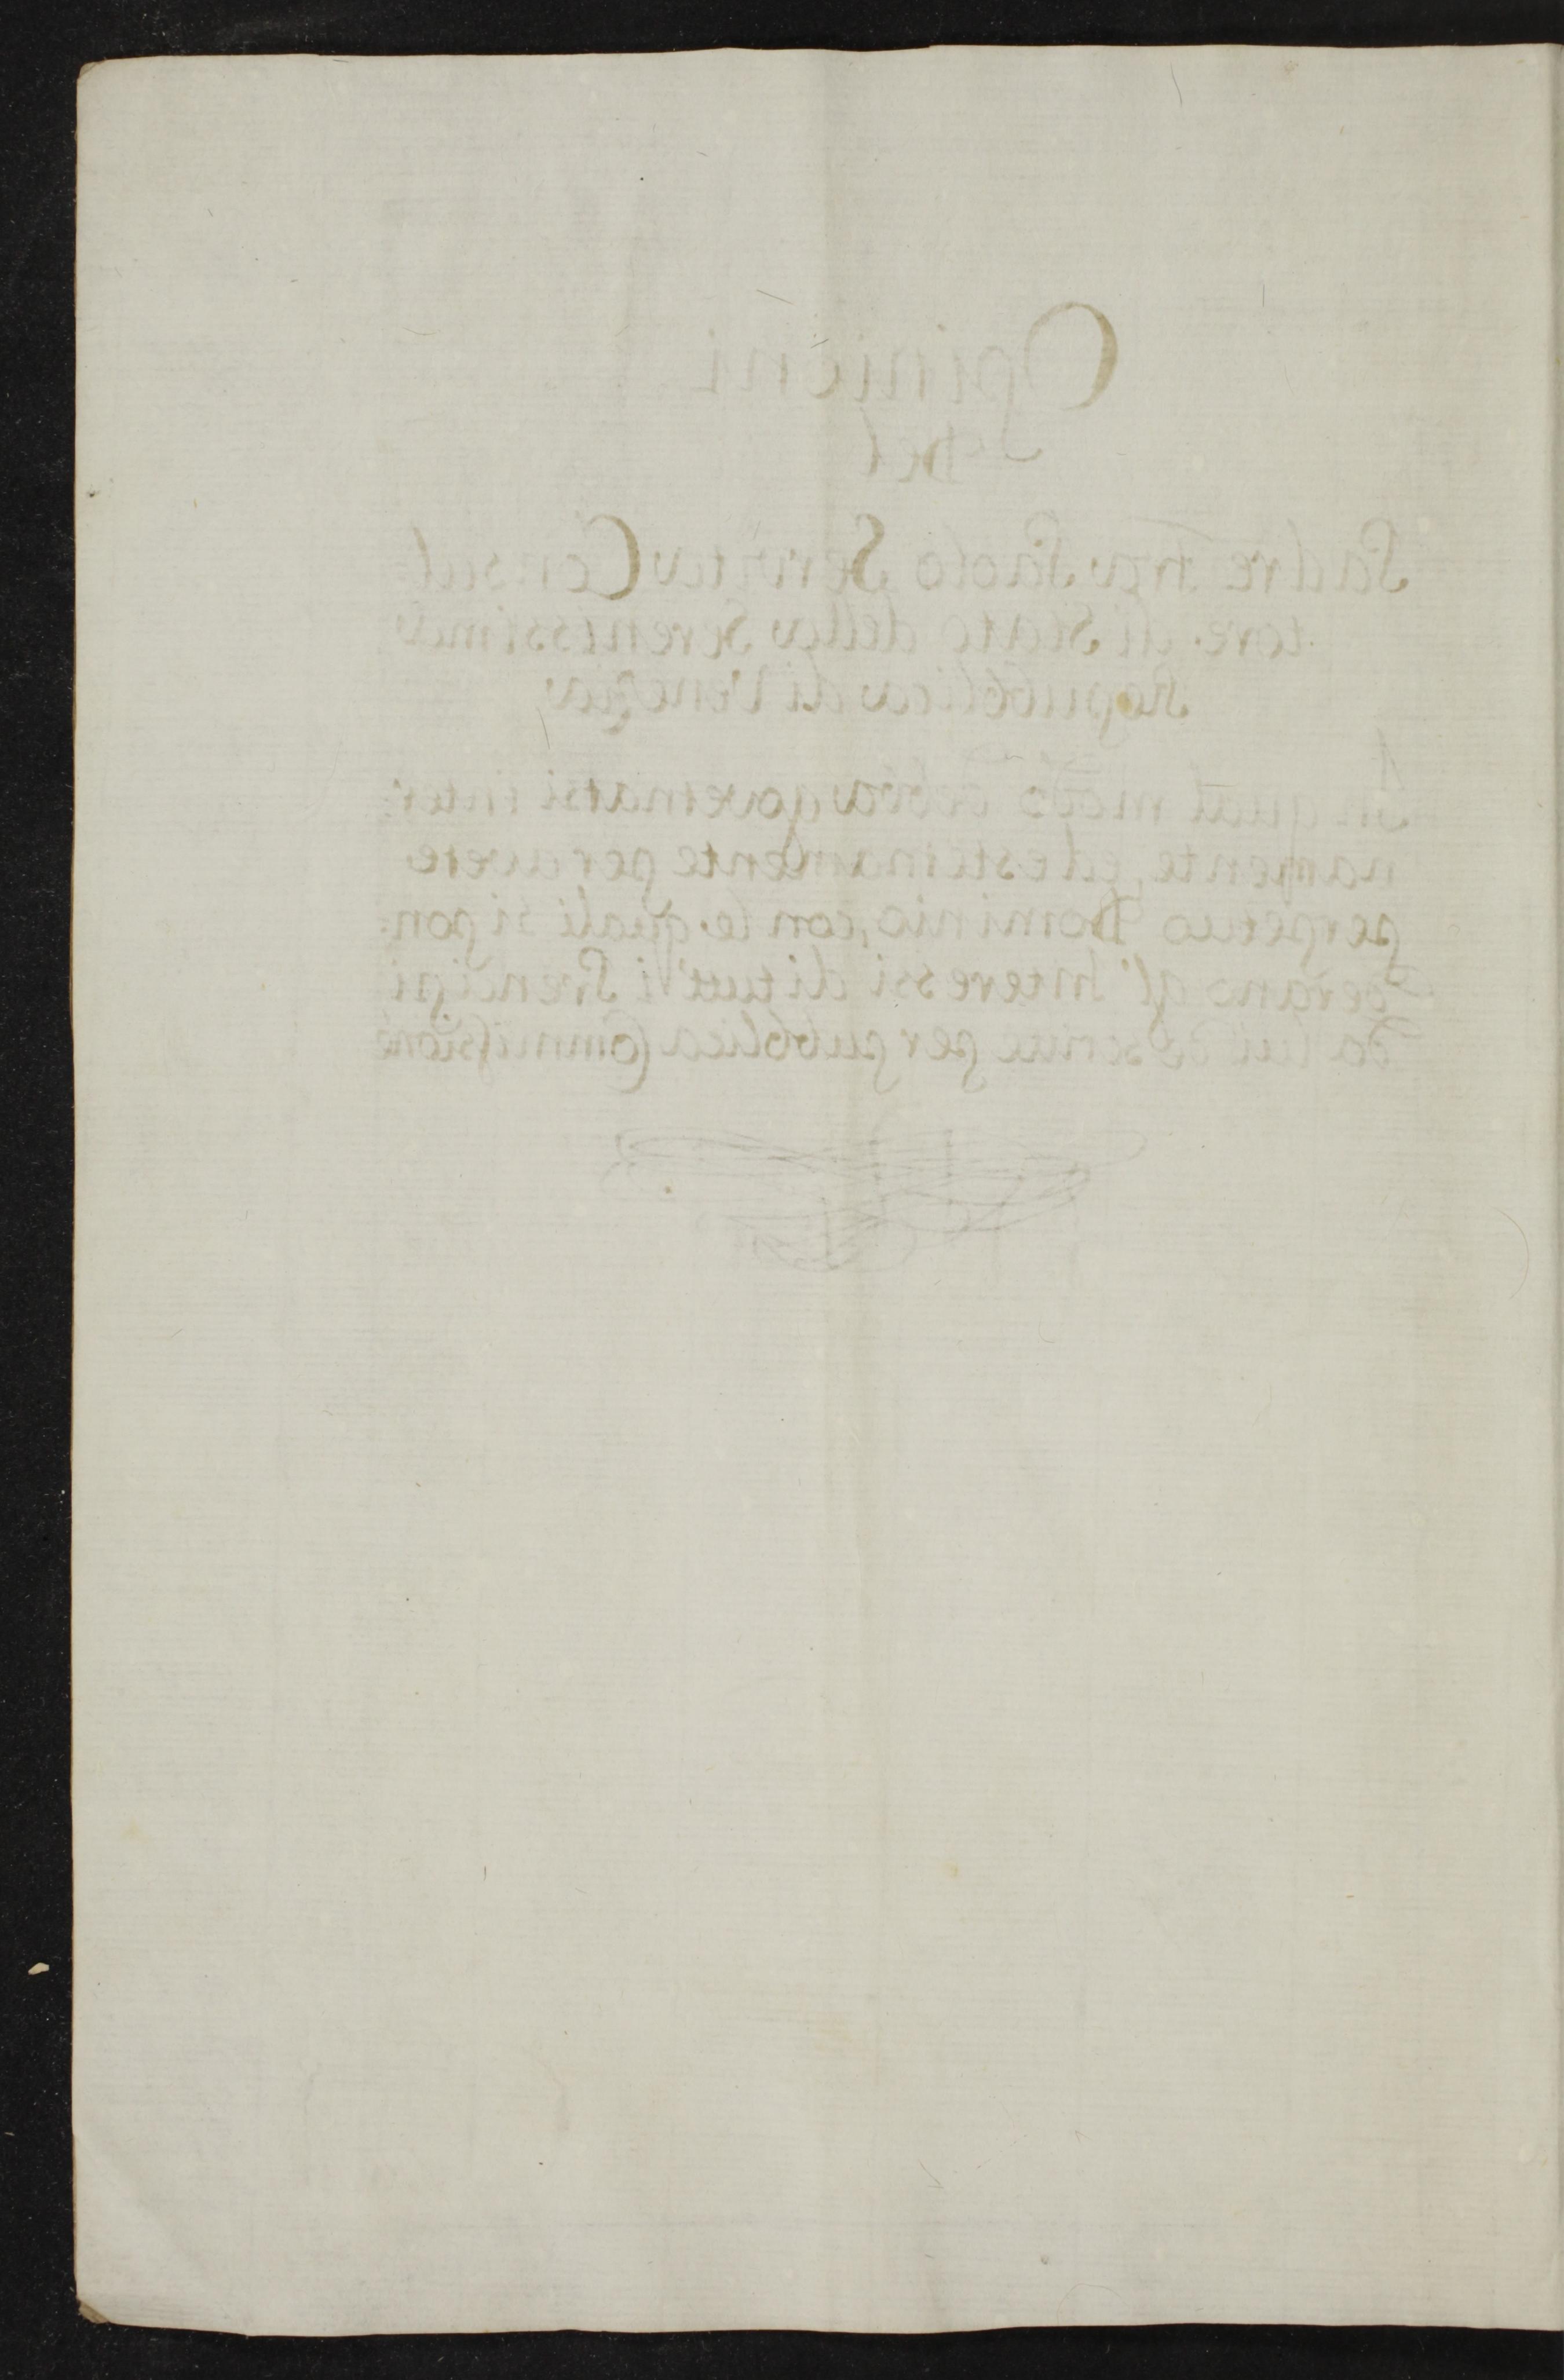 Opinioni
Del
Padre Fra Paolo Servita Consul=
tore di Stato della Serenissima
Republica di Venezia
In qual modo debba governarsi inter=
namente, ed esternamente per avere
perpetuo Dominio, con le quali si pon=
derano gl' Interessi di tutt' i Prencipi
da lui descritte per pubblica Commissione